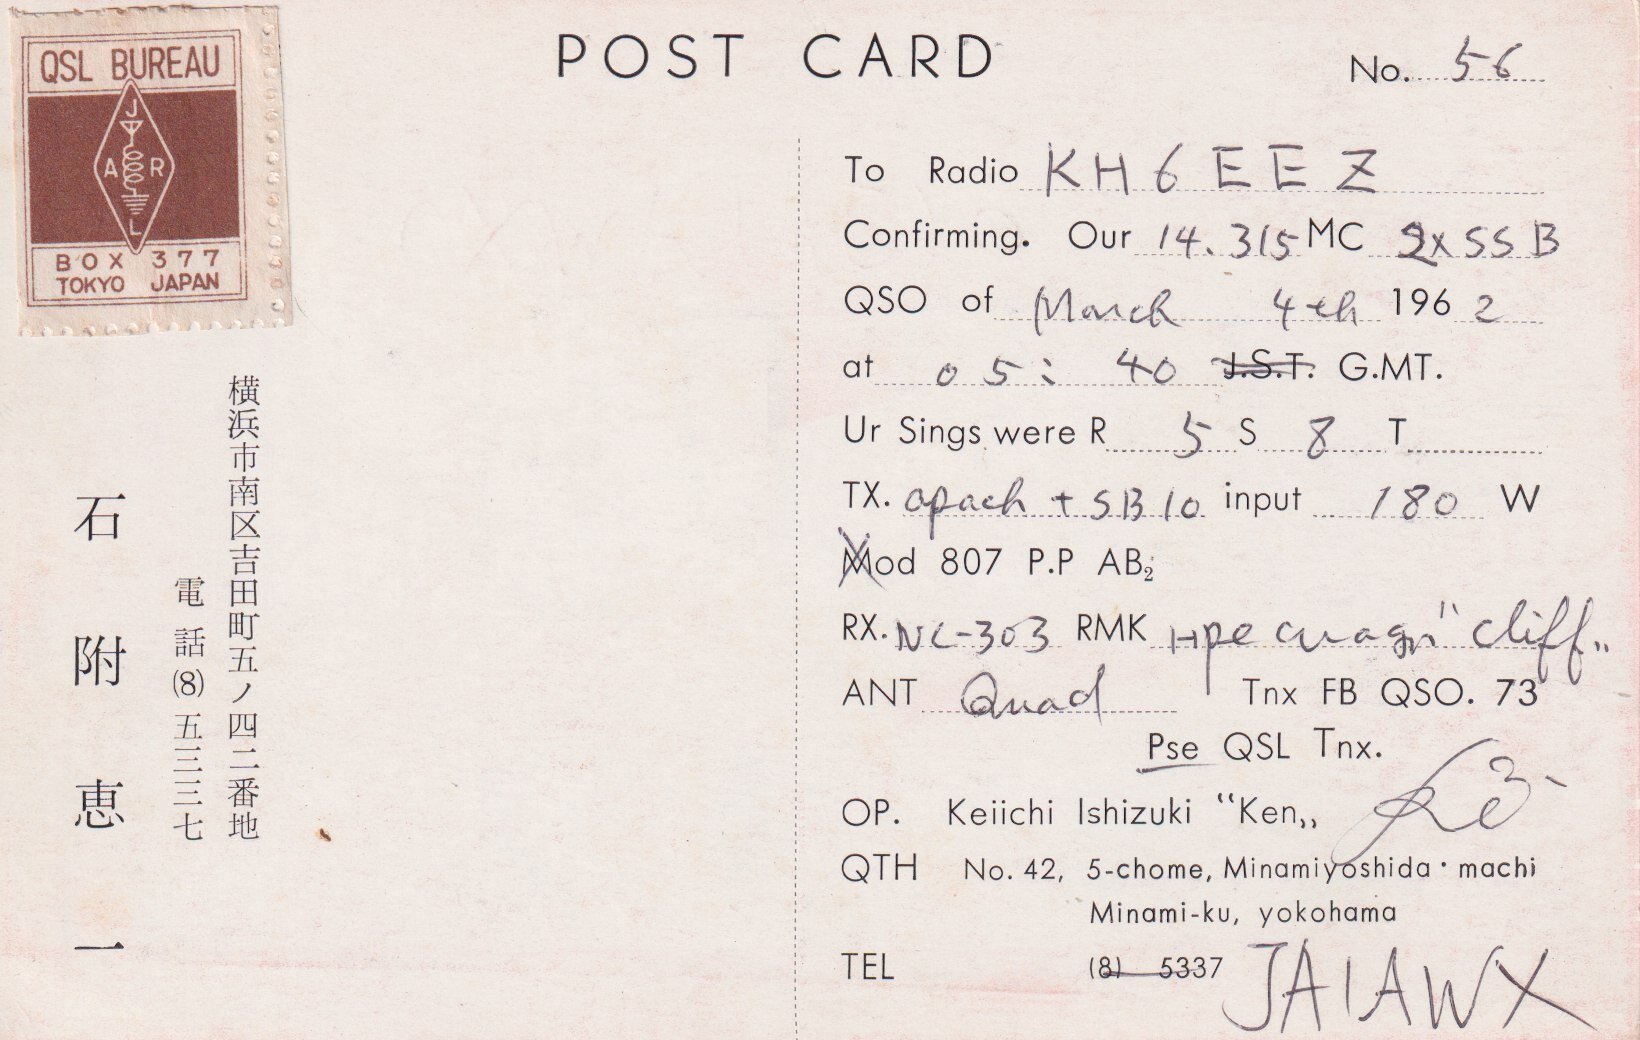 QSL BUREAU
J
A R
L
BOX 377
TOKYO JAPAN
横浜市南区吉田町五ノ四二番地
電話(8)五三三七
石附恵一
POST CARD
No. 56
To Radio KH6EEZ
Confirming. Our 14.315 MC 2x SSB
QSO of March 4th 1962
at 05:40 J.S.T. G.M.T.
Ur Sings were R 5 S 8 T
TX. apach + SB10 input 180 W
Mod 807 P.P AB₂
RX. NC-303 RMK Hpe cuagn "Cliff„
ANT Quad Tnx FB QSO. 73
Pse QSL Tnx.
OP. Keiichi Ishizuki “Ken„
QTH No. 42, 5-chome, Minamiyoshida・machi
Minami-ku, yokohama
TEL (8) 5337 JA1AWX